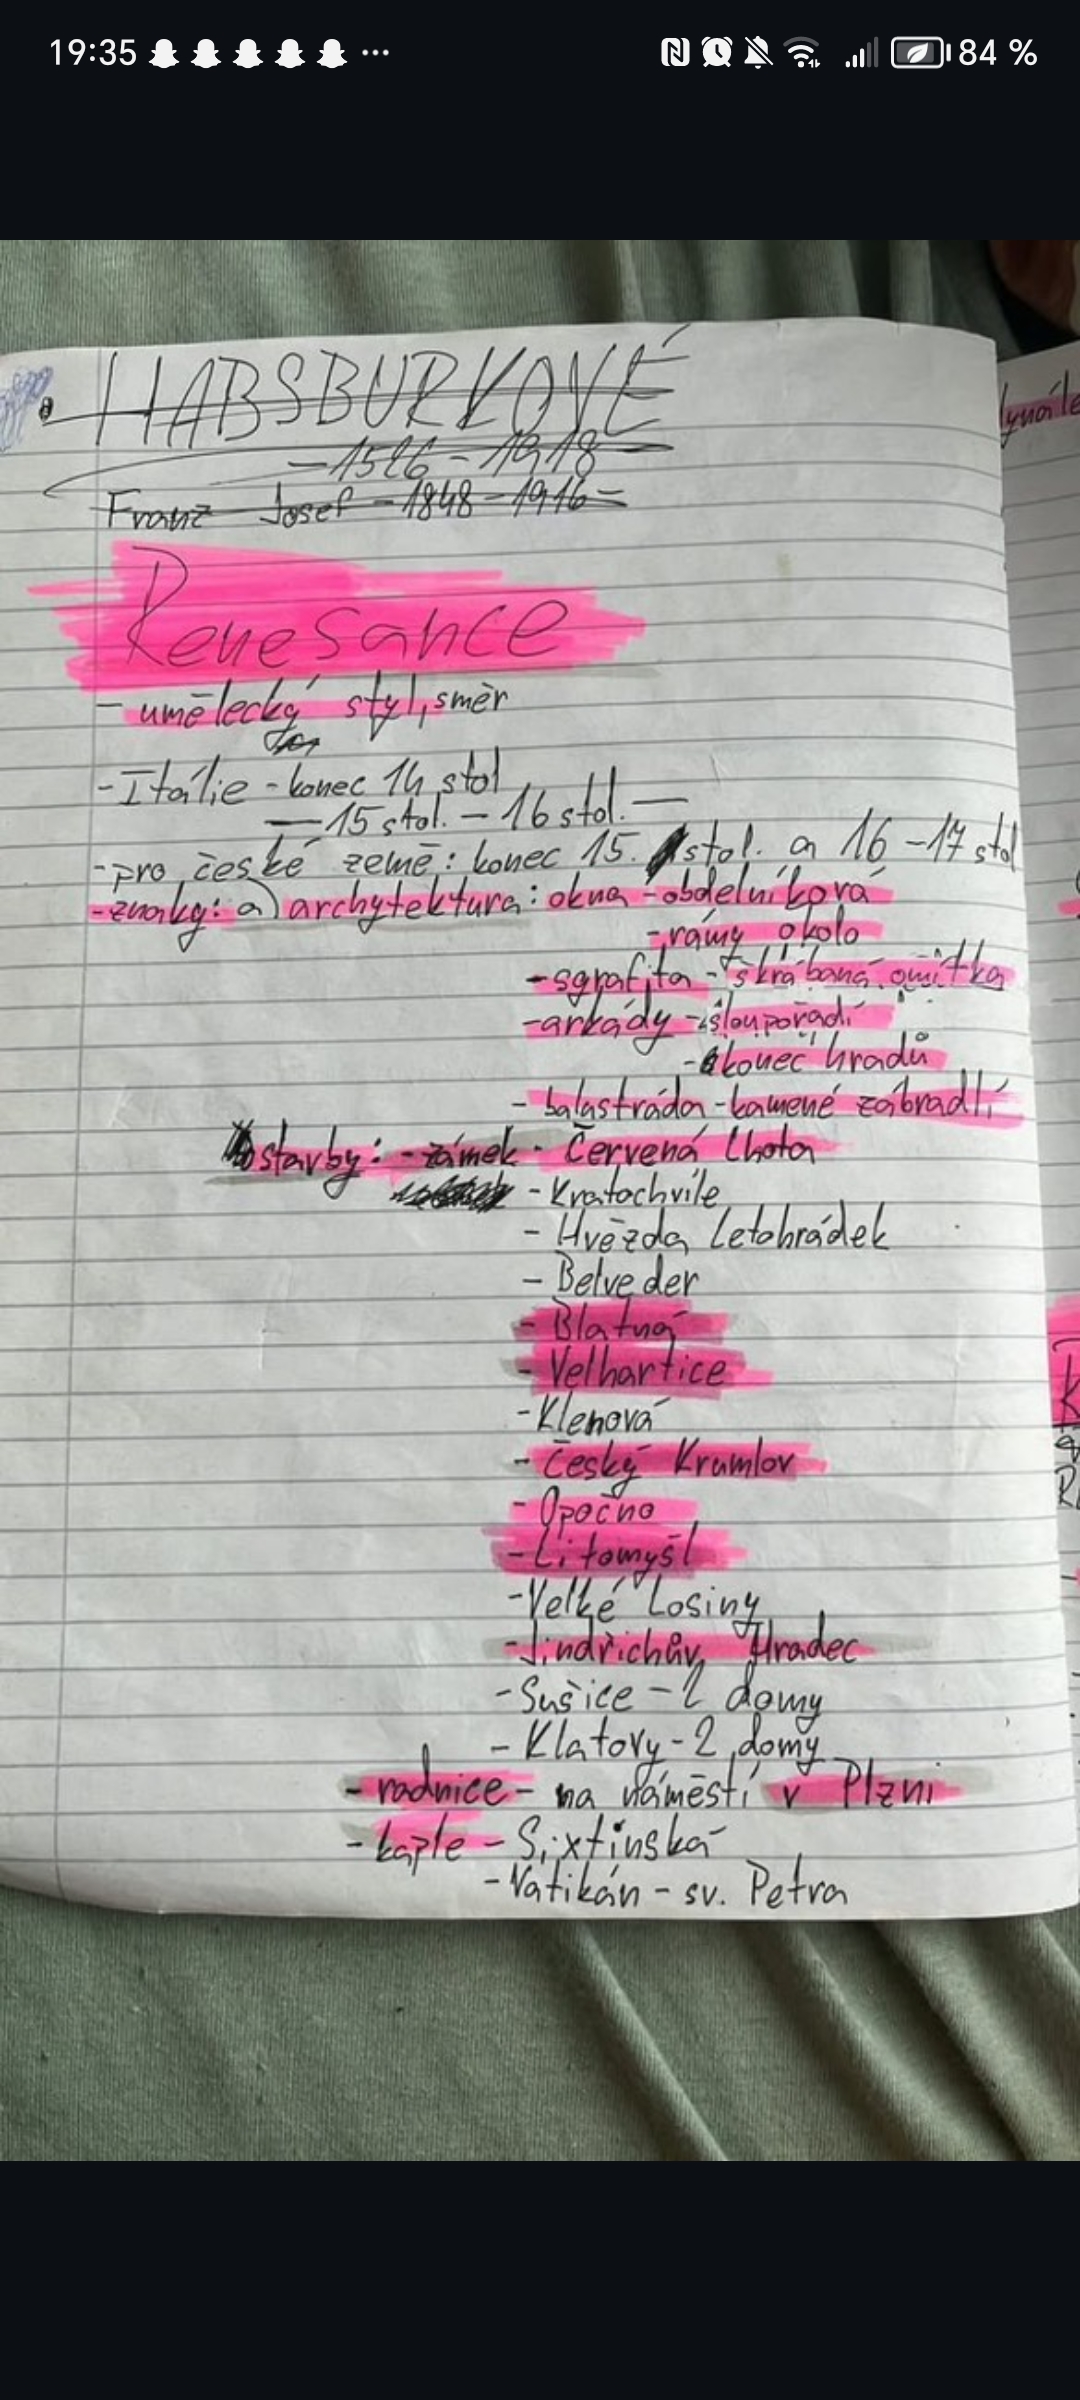 19:35 84 %
HABSBURKOVÉ
-1526-1918
Franz Josef -1848-1916-
Renesance
- umělecký styl, směr
- Itálie - konec 14 stol
- 15 stol. - 16 stol. -
- pro české země: konec 15. stol. a 16 -17 stol
- znaky: a) archytektura: okna - obdelníková
- rámy okolo
- sgrafita - škrábaná omítka
- arkády - sloupořadí
- konec hradů
- balastráda - kamené zábradlí
stavby: - zámek - Červená Lhota
- Kratochvíle
- Hvězda Letohrádek
- Belveder
- Blatná
- Velhartice
- Klenová
- Český Krumlov
- Opočno
- Litomyšl
- Velké Losiny
- Jindřichův Hradec
- Sušice - 2 domy
- Klatovy - 2 domy
- radnice - na náměstí v Plzni
- kaple - Sixtinská
- Vatikán - sv. Petra